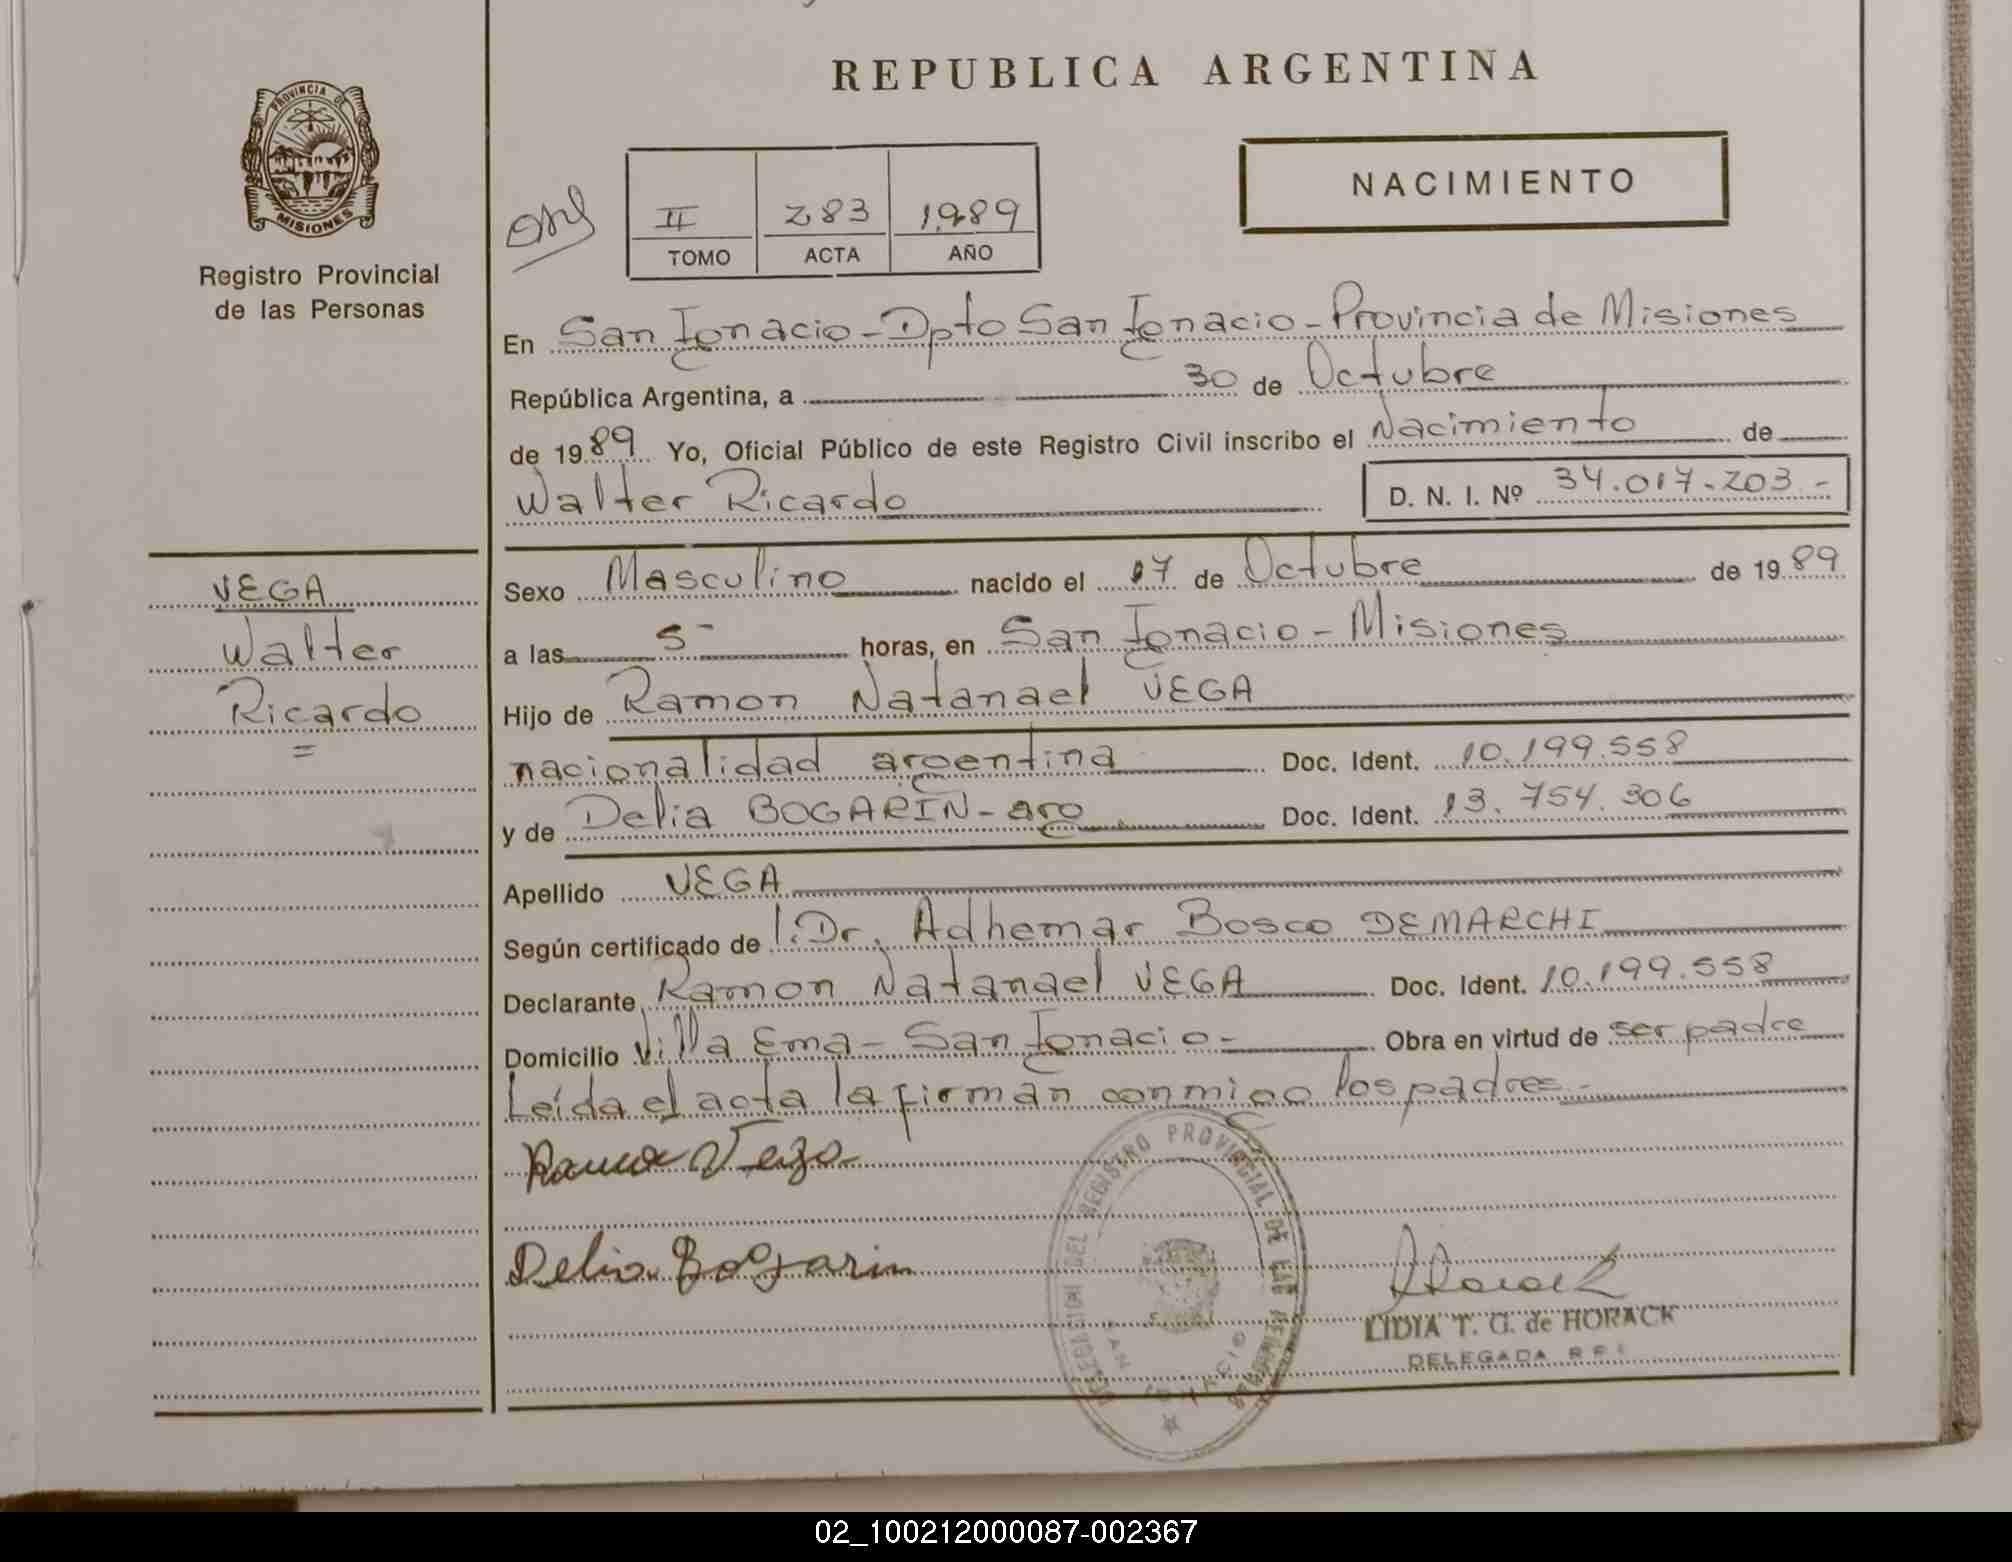 REPUBLICA ARGENTINA
PROVINCIA DE
MISIONES
Registro Provincial
de las Personas
II 283 1989
TOMO ACTA AÑO
NACIMIENTO
En San Ignacio - Dpto San Ignacio - Provincia de Misiones
República Argentina, a 30 de Octubre
de 1989 Yo, Oficial Público de este Registro Civil inscribo el Nacimiento de
Walter Ricardo D. N. I. Nº 34.017.203.-
VEGA
Walter
Ricardo
=
Sexo Masculino nacido el 17 de Octubre de 1989
a las 5- horas, en San Ignacio - Misiones
Hijo de Ramon Natanael VEGA
nacionalidad argentina Doc. Ident. 10.199.558
y de Delia BOGARIN - arg. Doc. Ident. 13.754.306
Apellido VEGA
Según certificado de l. Dr. Adhemar Bosco DEMARCHI
Declarante Ramon Natanael VEGA Doc. Ident. 10.199.558
Domicilio Villa Ema - San Ignacio - Obra en virtud de ser padre
Leída el acta la firman conmigo los padres.-
Ramon Vega
Delia Bogarin
DELEGACION DEL REGISTRO PROVINCIAL DE LAS PERSONAS
SAN IGNACIO
LIDIA T. G. de HORACK
DELEGADA
02_100212000087-002367